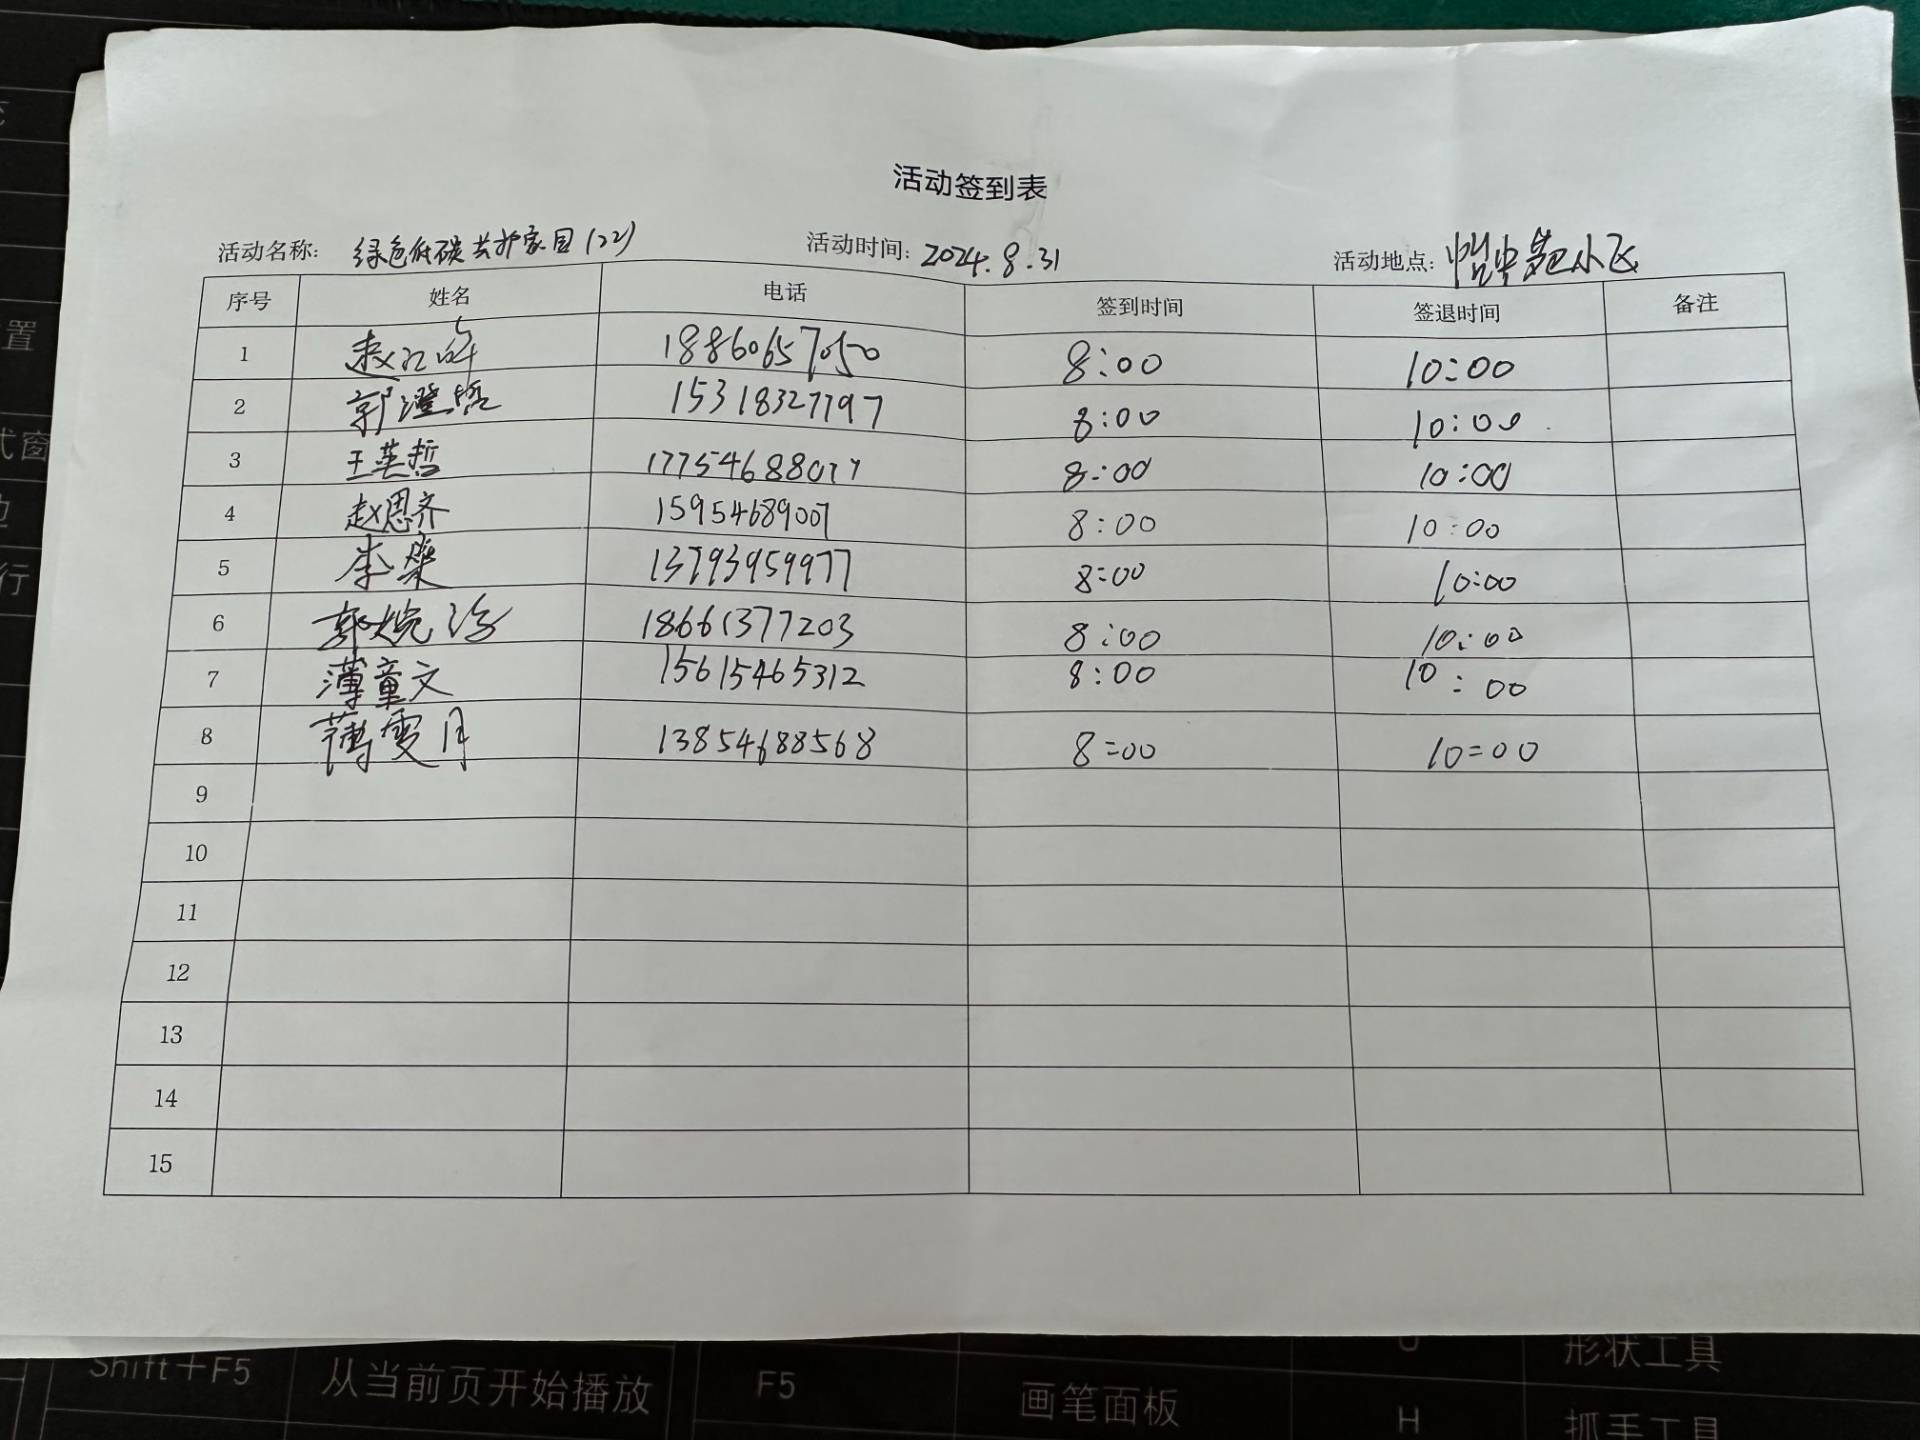 活动签到表
活动名称: 绿色低碳共护家园(22) 活动时间: 2024.8.31 活动地点: 怡中苑小区
序号 姓名 电话 签到时间 签退时间 备注
1 赵 18860657050 8:00 10:00
2 郭澄哲 15318327797 8:00 10:00
3 王英哲 17754688077 8:00 10:00
4 赵思齐 15954689007 8:00 10:00
5 李燊 13793959977 8:00 10:00
6 郭婉 18661377203 8:00 10:00
7 薄童文 15615465312 8:00 10:00
8 薄雯月 13854688568 8:00 10:00
9
10
11
12
13
14
15
Shift+F5 从当前页开始播放 F5 画笔面板 H 形状工具
抓手工具